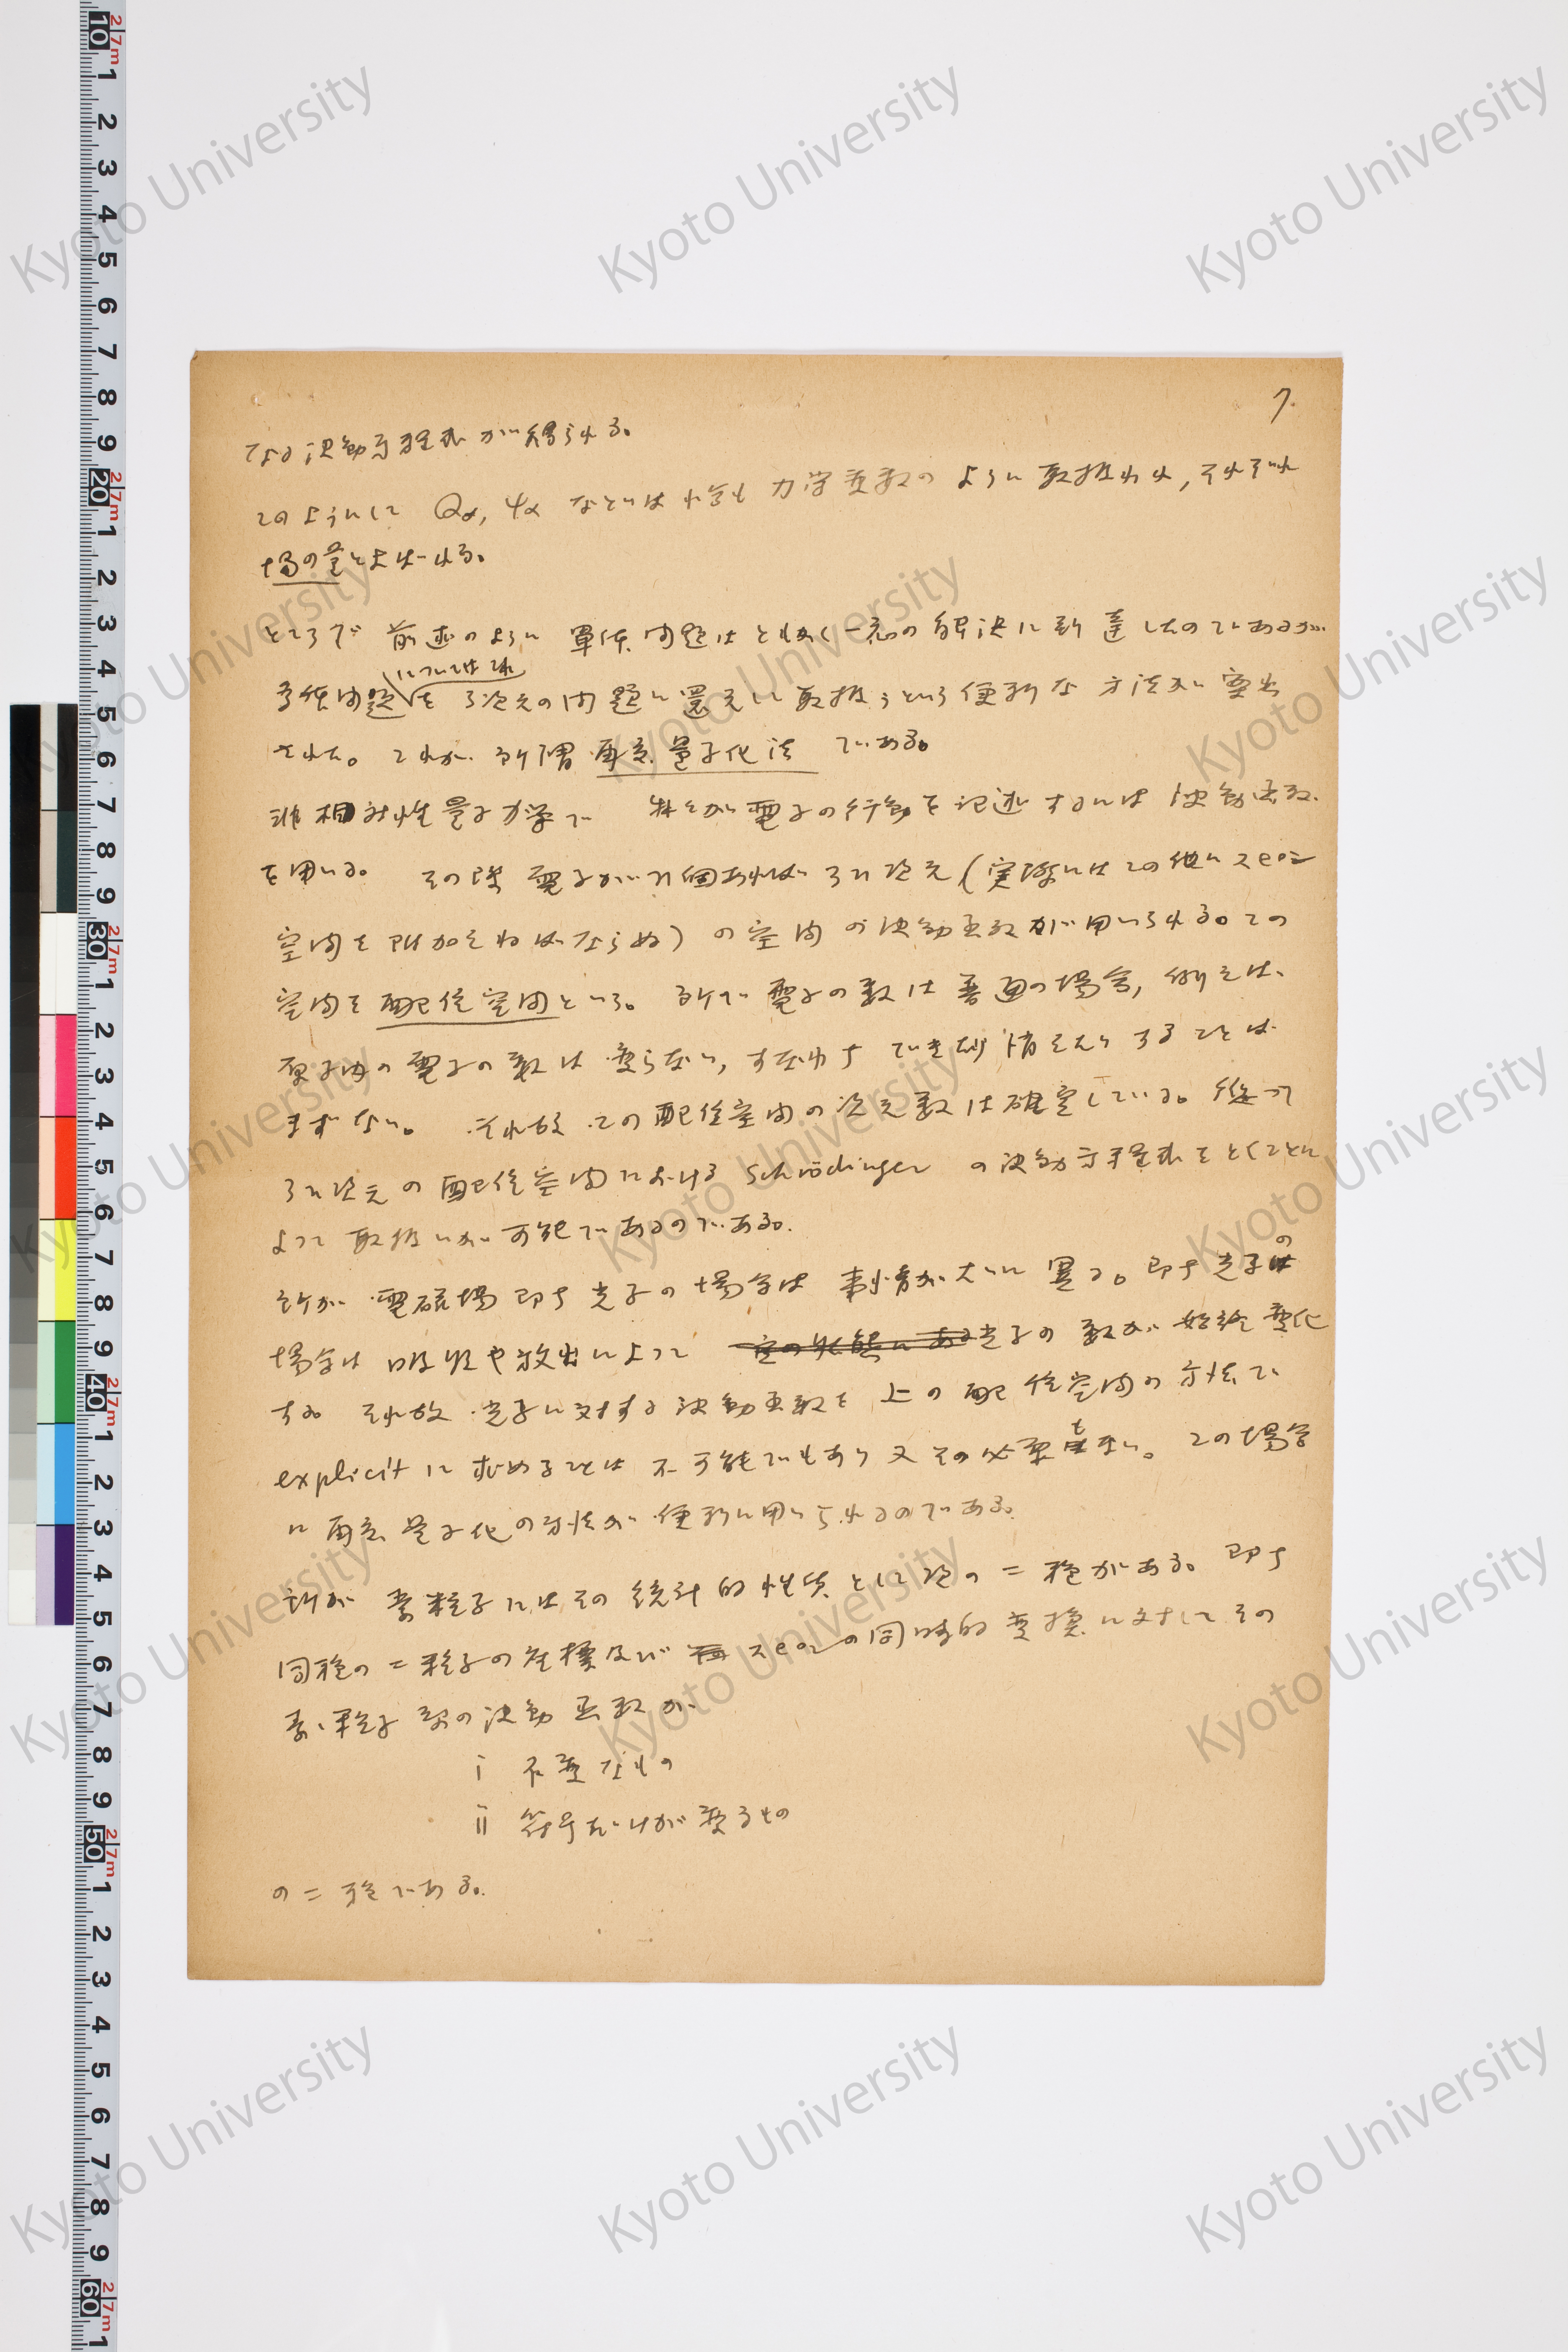 7.
なる波動方程式が得られる。
このようにして Qα, ψα などは 力学変数のように取扱われ, それぞれ
場の量とよばれる。
ところで 前述のように 単体問題はともかく一応の解決に到達したのであるが
多体問題 については これ を 3次元の問題に還元して取扱うという便利な方法が案出
された。これが 所謂 再度量子化法 である。
非相対性量子力学で 電子の行動を記述するには 波動函数
を用いる。 その際 電子がn個あれば 3n次元(実際にはこの他に spin
空間を附加せねばならぬ)の空間の波動函数が用いられる。この
空間を 配位空間という。 所で 電子の数は普通の場合, 例えば、
原子内の電子の数は 変らない, すなわち できたり消えたりすることは
まずない。 それ故 この配位空間の次元数は確定している。従って
3n次元の配位空間における Schrödinger の波動方程式をとくことに
よって 取扱いが可能であるのである。
所が 電磁場 即ち 光子の場合は 事情が大いに異る。即ち光子の
場合は 吸収や放出によって 光子の数が 始終変化
する それ故 光子に対する波動函数を 上の配位空間の方法で
explicit に求めることは 不可能でもあり又その必要もない。この場合
に 再度量子化の方法が 便利に用いられるのである。
所が 素粒子にはその統計的性質として次の二種がある。即ち
同種の二粒子の座標及び spin の同時的変換に対してその
素粒子系の波動函数が
i 不変なもの
ii 符号だけが変るもの
の二種である。
Kyoto University